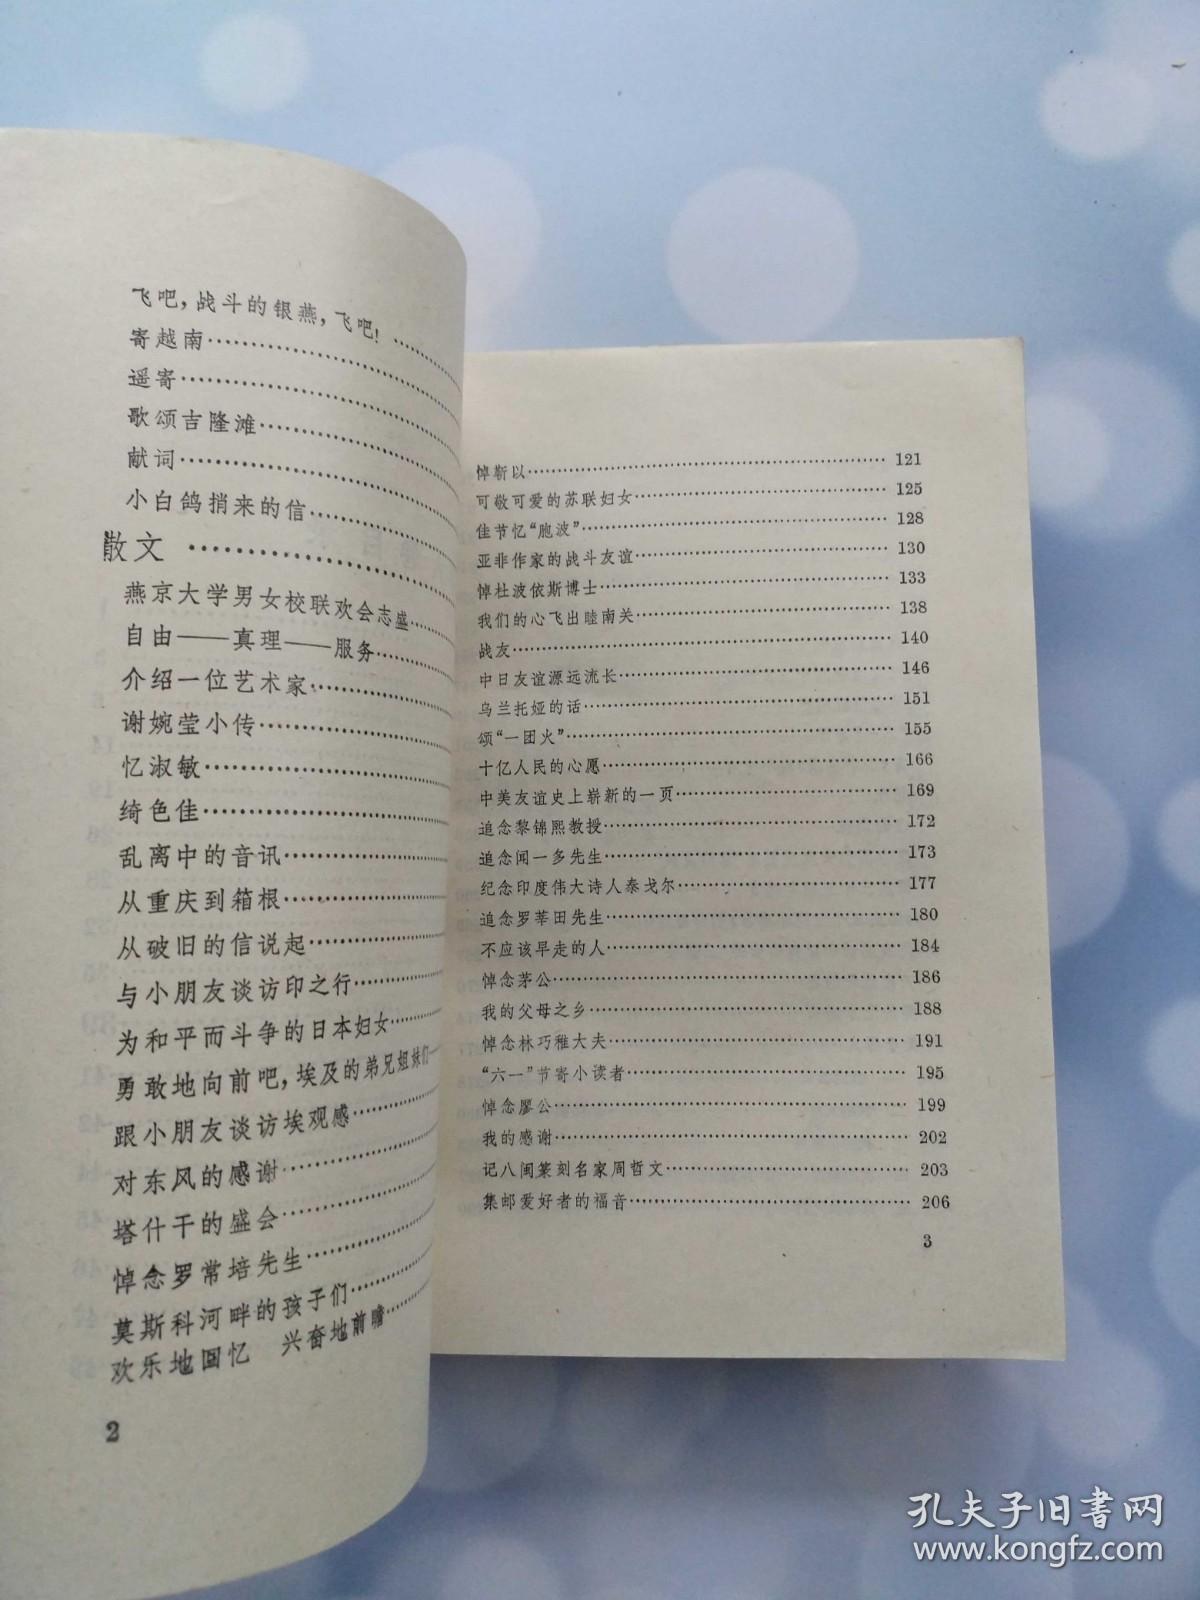 飞吧，战斗的银燕，飞吧！……
寄越南……
遥寄……
歌颂吉隆滩……
献词……
小白鸽捎来的信……
散文……
燕京大学男女校联欢会志盛……
自由——真理——服务……
介绍一位艺术家……
谢婉莹小传……
忆淑敏……
绮色佳……
乱离中的音讯……
从重庆到箱根……
从破旧的信说起……
与小朋友谈访印之行……
为和平而斗争的日本妇女……
勇敢地向前吧，埃及的弟兄姐妹们……
跟小朋友谈访埃观感……
对东风的感谢……
塔什干的盛会……
悼念罗常培先生……
莫斯科河畔的孩子们……
欢乐地回忆 兴奋地前瞻……
2
悼靳以……121
可敬可爱的苏联妇女……125
佳节忆“胞波”……128
亚非作家的战斗友谊……130
悼杜波依斯博士……133
我们的心飞出睦南关……138
战友……140
中日友谊源远流长……146
乌兰托娅的话……151
颂“一团火”……155
十亿人民的心愿……166
中美友谊史上崭新的一页……169
追念黎锦熙教授……172
追念闻一多先生……173
纪念印度伟大诗人泰戈尔……177
追念罗莘田先生……180
不应该早走的人……184
悼念茅公……186
我的父母之乡……188
悼念林巧稚大夫……191
“六一”节寄小读者……195
悼念廖公……199
我的感谢……202
记八闽篆刻名家周哲文……203
集邮爱好者的福音……206
3
孔夫子旧书网
www.kongfz.com